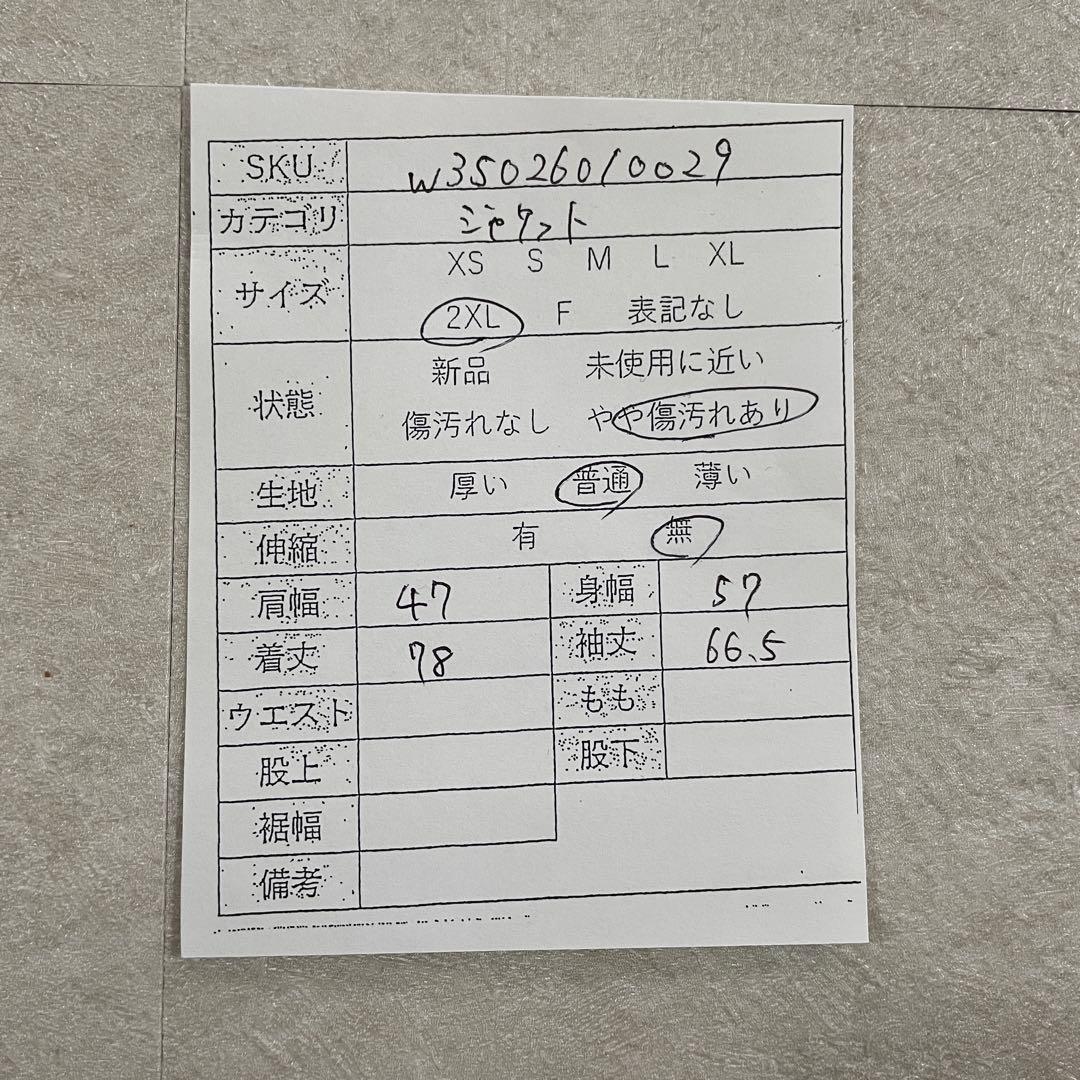 SKU w35026010029
カテゴリ ジャケット
サイズ XS S M L XL
2XL F 表記なし
状態 新品 未使用に近い
傷汚れなし やや傷汚れあり
生地 厚い 普通 薄い
伸縮 有 無
肩幅 47 身幅 57
着丈 78 袖丈 66.5
ウエスト もも
股上 股下
裾幅
備考